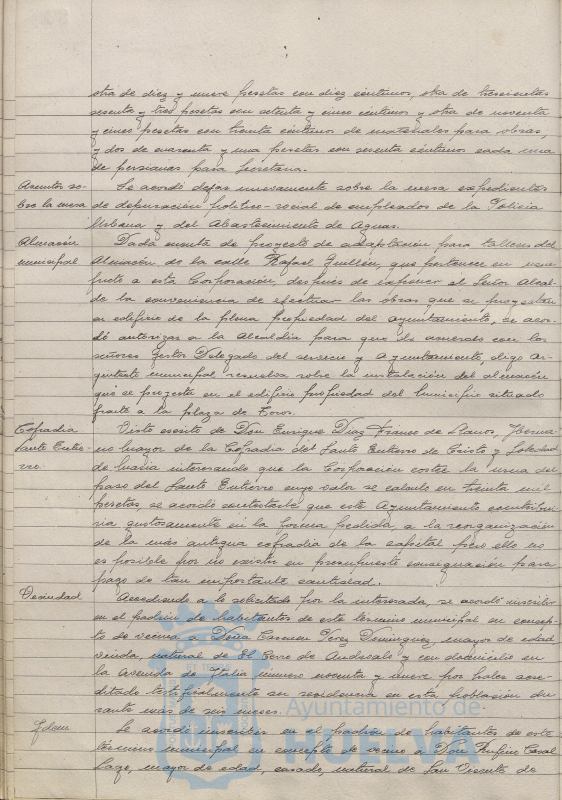 otra de diez y nueve pesetas con diez céntimos, otra de trescientas
sesenta y tres pesetas con setenta y cinco céntimos y otra de noventa
y cinco pesetas con treinta céntimos de materiales para obras,
y dos de cuarenta y una pesetas con sesenta céntimos cada una
de persianas para Secretaría.
Asuntos so-
bre la mesa
Se acordó dejar nuevamente sobre la mesa expedientes
de depuración político-social de empleados de la Policía
Urbana y del Abastecimiento de Aguas.
Almacén
municipal
Dada cuenta de proyecto de adaptación para talleres del
Almacén de la calle Rafael Guillén, que pertenece en usu-
fructo a esta Corporación, después de exponer el Señor Alcal-
de la conveniencia de efectuar las obras que se proyectan
en edificio de la plena propiedad del Ayuntamiento, se acor-
dó autorizar a la Alcaldía para que de acuerdo con los
señores Gestor Delegado del servicio y Ayuntamiento, digo Ar-
quitecto municipal resuelva sobre la instalación del almacén
que se proyecta en el edificio propiedad del Municipio situado
frente a la plaza de Toros.
Cofradía
Santo Entie-
rro.
Visto escrito de Don Enrique Díaz Franco de Llanos, Herma-
no Mayor de la Cofradía del Santo Entierro de Cristo y Soledad
de María interesando que la Corporación costee la
paso del Santo Entierro cuyo valor se calcula en treinta mil
pesetas, se acordó contestarle que este Ayuntamiento contribui-
ría gustosamente en la forma pedida, a la reorganización
de la más antigua cofradía de la capital pero ello no
es posible por no existir en presupuesto consignación para
pago de tan importante cantidad.
Vecindad
Accediendo a lo solicitado por la interesada, se acordó inscribir
en el padrón de habitantes de este término municipal en concep-
to de vecina a Doña Carmen Pérez Domínguez, mayor de edad
viuda, natural de El Cerro de Andévalo y con domicilio en
la Avenida de Italia número noventa y nueve por haber acre-
ditado testificalmente su residencia en esta población du-
rante más de seis meses.
Idem
Se acordó inscribir en el padrón de habitantes de este
término municipal en concepto de vecino a Don Rufino Casal
Lago, mayor de edad, casado, natural de San Vicente de
Ayuntamiento de
HUELVA